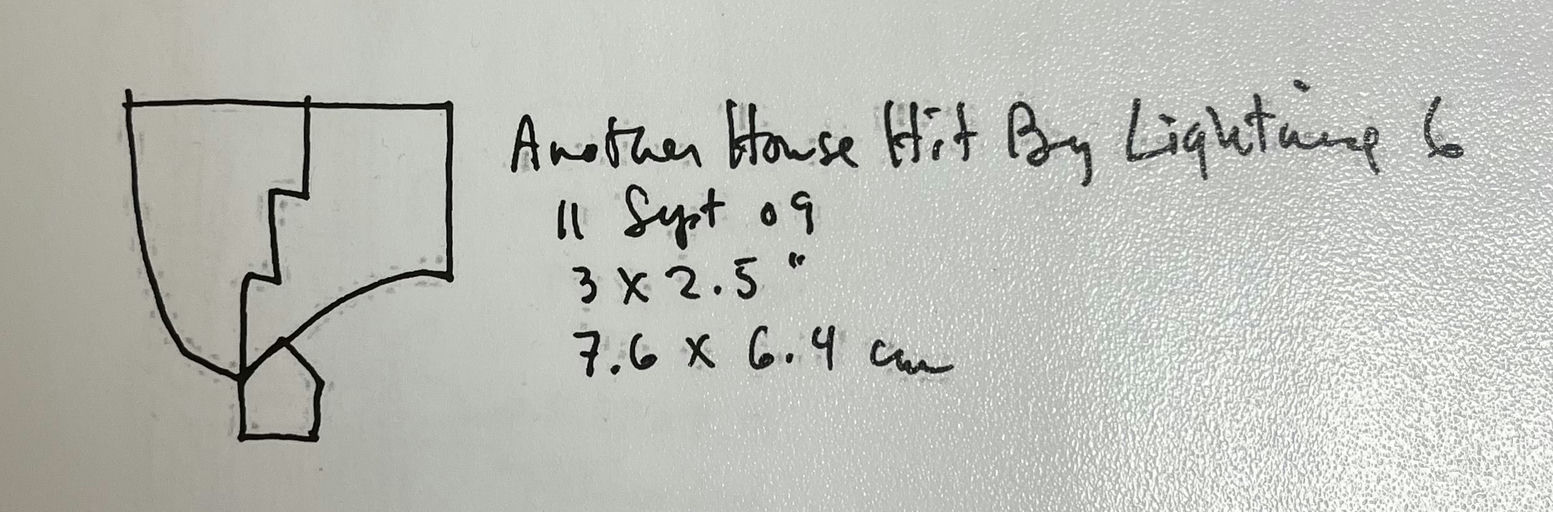 Another House Hit By Lightning 6
11 Sept 09
3 x 2.5"
7.6 x 6.4 cm